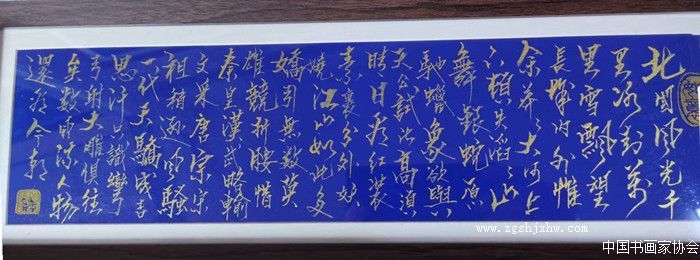 北國风光千
里冰封萬
里雪飄望
長城内外惟
余莽莽大河上
下頓失滔滔山
舞銀蛇原
馳蠟象欲與
天公試比高須
晴日看红裝
素裹分外妖
嬈江山如此多
嬌引無數英
雄競折腰惜
秦皇漢武略輸
文采唐宗宋
祖稍遜风騷
一代天驕成吉
思汗只識彎
弓射大雕俱往
矣數风流人物
還看今朝
www.zgshjxhw.com
中国书画家协会